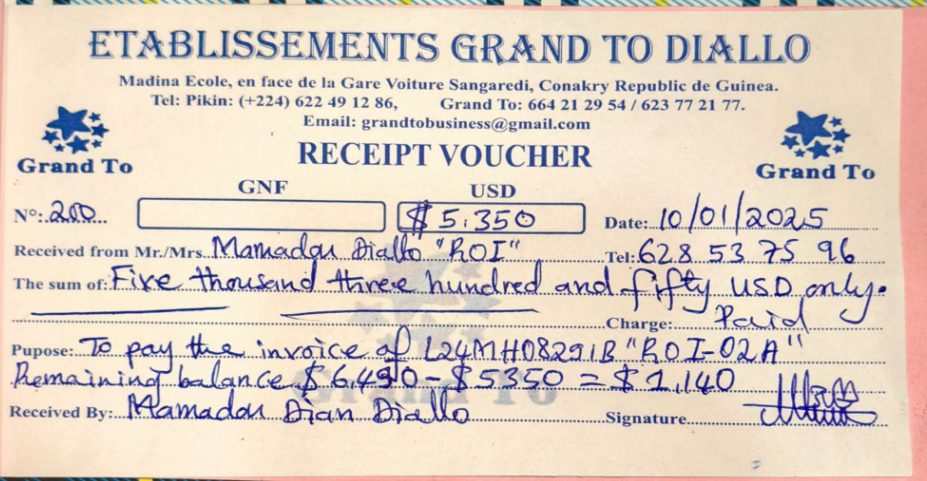 ETABLISSEMENTS GRAND TO DIALLO
Madina Ecole, en face de la Gare Voiture Sangaredi, Conakry Republic de Guinea.
Tel: Pikin: (+224) 622 49 12 86, Grand To: 664 21 29 54 / 623 77 21 77.
Email: grandtobusiness@gmail.com
Grand To
RECEIPT VOUCHER
Grand To
GNF USD
N°: 200 $ 5.350 Date: 10/01/2025
Received from Mr./Mrs. Mamadou Diallo "ROI" Tel: 628 53 75 96
The sum of: Five thousand three hundred and fifty USD only.
Charge: Paid
Pupose: To pay the invoice of L24MH08291B "ROI-02A"
Remaining balance $ 6,490 - $ 5350 = $ 1,140
Received By: Mamadou Dian Diallo Signature